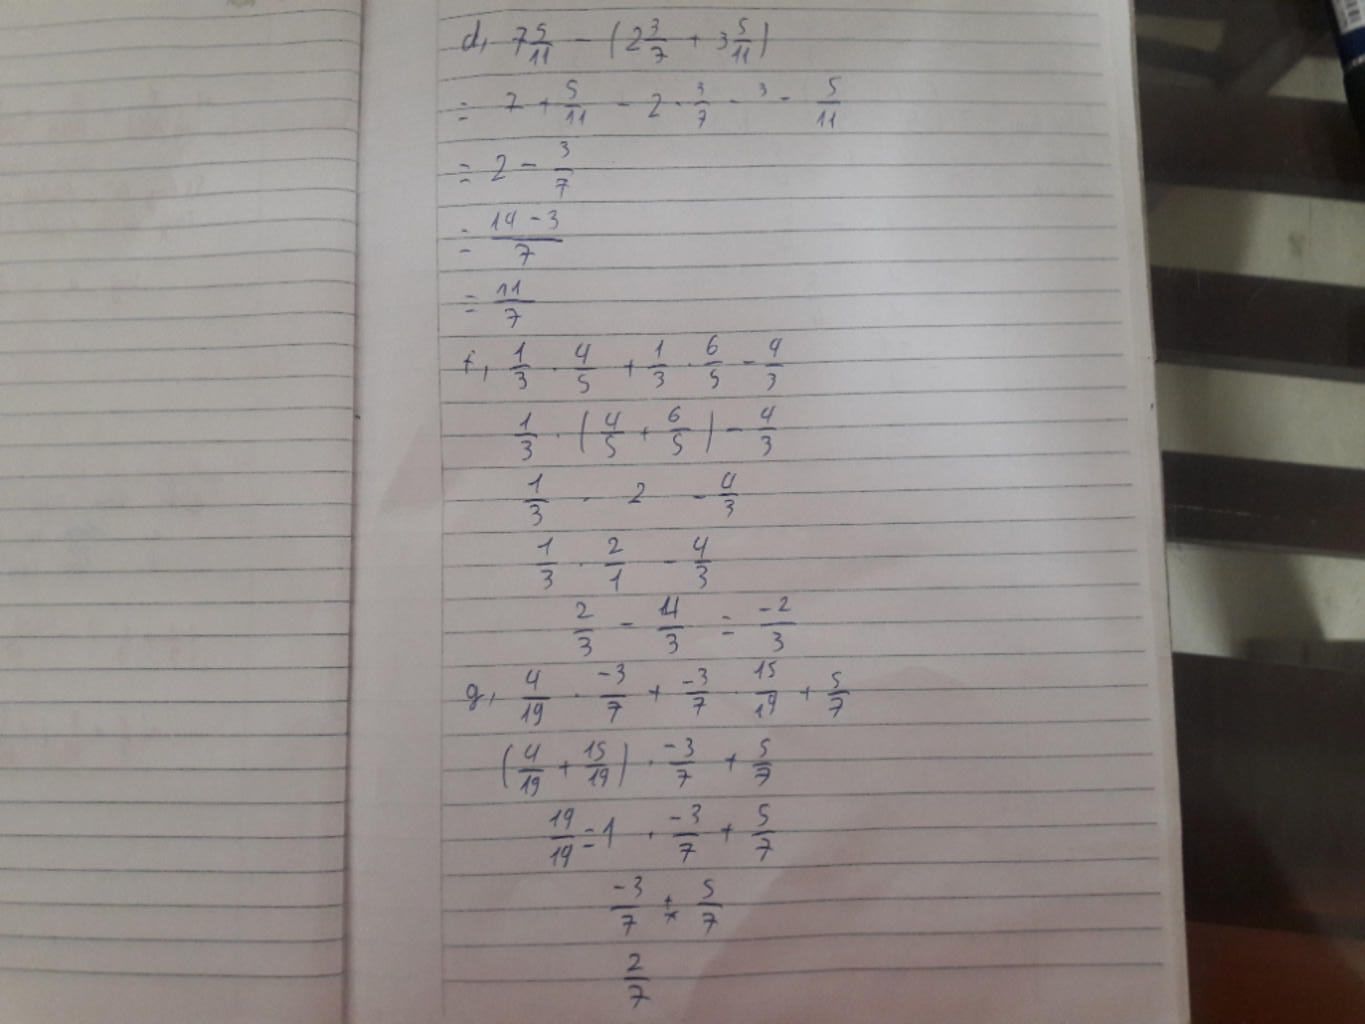 d, 7 5/11 - (2 3/7 + 3 5/11)
= 7 + 5/11 - 2 - 3/7 - 3 - 5/11
= 2 - 3/7
= (14 - 3)/7
= 11/7
f, 1/3 . 4/5 + 1/3 . 6/5 - 4/3
1/3 . (4/5 + 6/5) - 4/3
1/3 . 2 - 4/3
1/3 . 2/1 - 4/3
2/3 - 4/3 = -2/3
g, 4/19 . -3/7 + -3/7 . 15/19 + 5/7
(4/19 + 15/19) . -3/7 + 5/7
19/19 = 1 . -3/7 + 5/7
-3/7 + 5/7
2/7